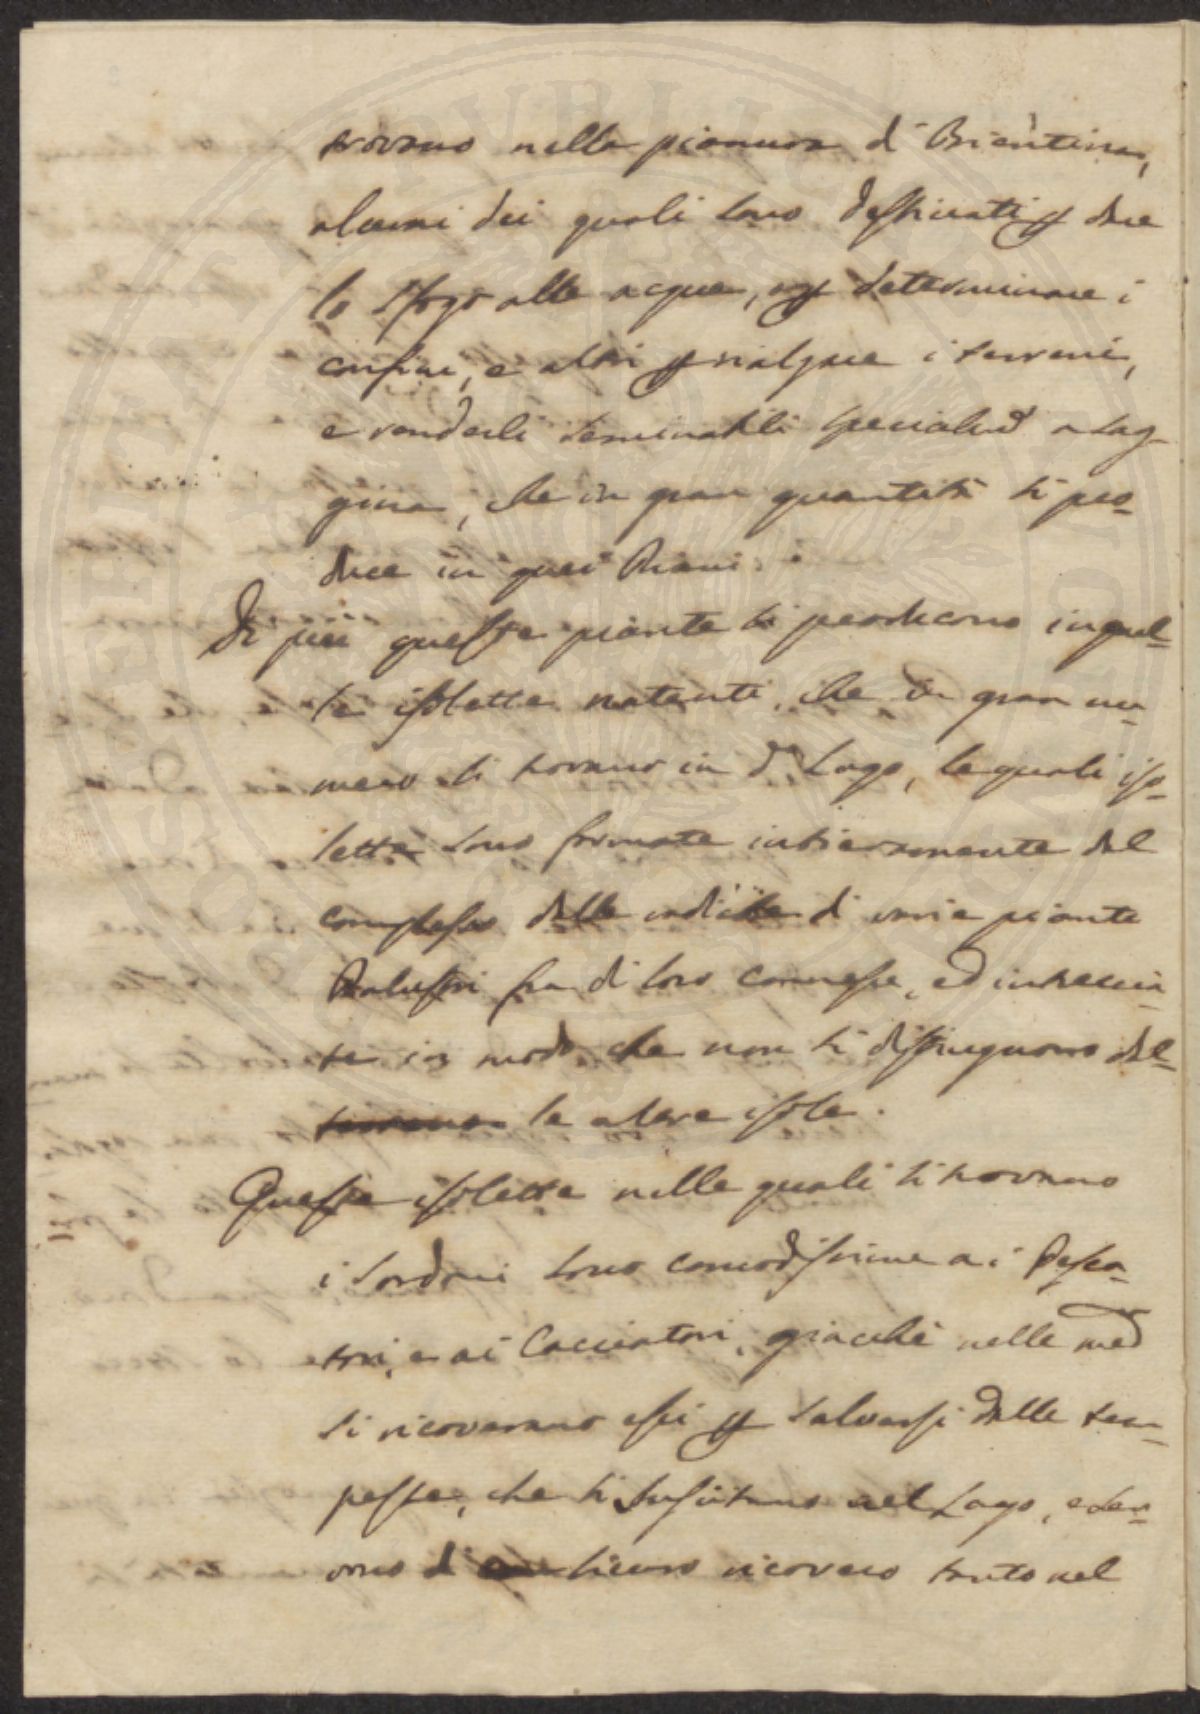 trovano nella pianura di Brientina,
alcuni dei quali sono destinati p dare
lo sfogo alle acque, o p determinare i
confini, e altri p rialzare i terreni,
e renderli seminabili specialmᵉ a sag-
gina, che in gran quantità si pro-
duce in quei Piani.
Di più queste piante si producono in quel-
le isolette natanti, che in gran nu-
mero si trovano in dᵒ Lago, le quali iso-
lette sono formate intieramente dal
complesso delle radiche di varie piante
Palustri fra di loro connesse, ed intreccia-
te in modo che non si distinguono dal-
le altre isole.
Queste isolette nelle quali si trovano
i Sordoni sono comodissime ai Pesca-
tori, e ai Cacciatori, giacchè nelle medᵉ
si ricoverano essi p salvarsi dalle tem-
peste, che si suscitano nel Lago, e ser-
vono di sicuro ricovero tanto nel